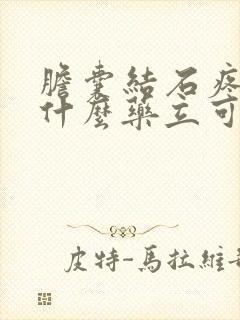 膽囊結石疼
什麼藥立可
皮特-馬拉維